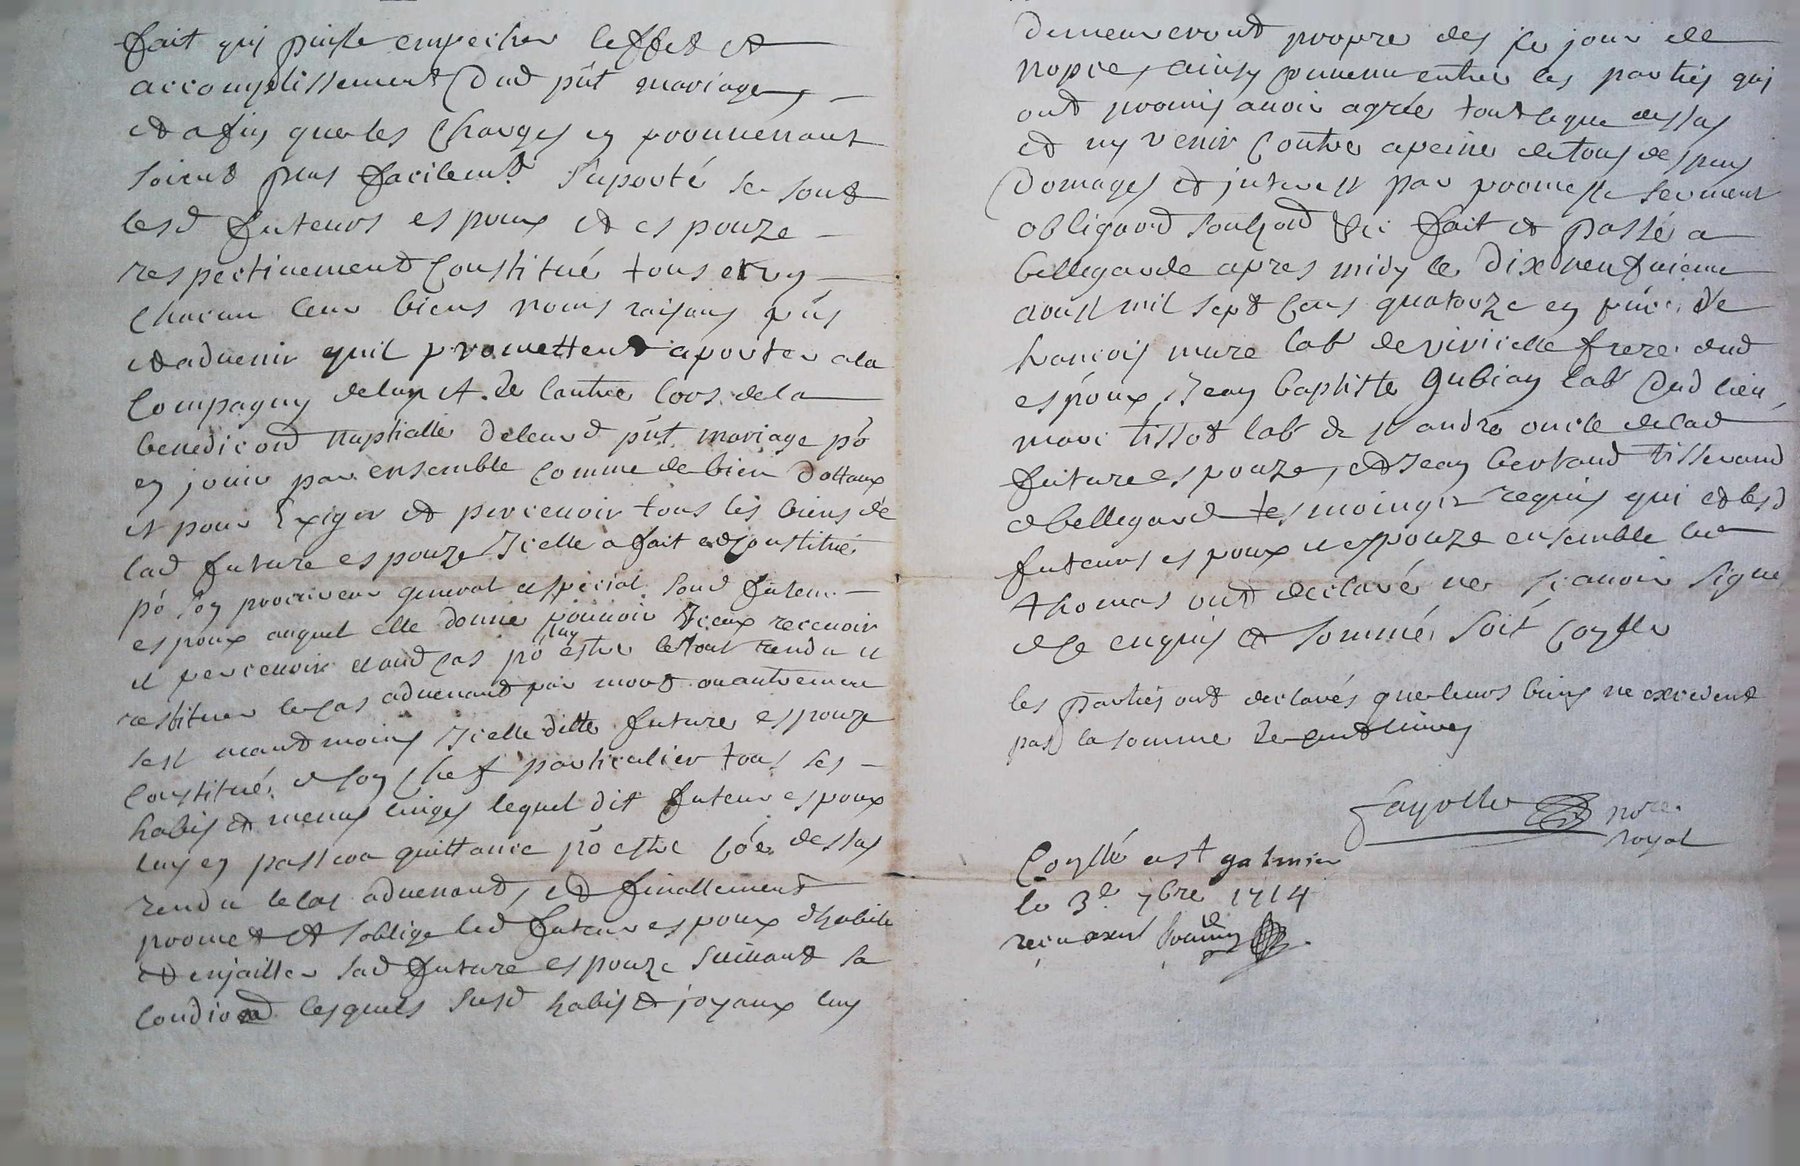 fait qui puisse empecher leffet et
accomplissement dud pñt mariage
et afin que les charges en prouuenant
soient plus facilemt suporté se sont
lesd futeurs espoux et espouze
respectiuement constitué tous et un
chacun leur biens noms raisons pñs
et aduenir quil promettent aporter a la
compagny de lun et de lautre lors de la
benediction nuptialle de leurd pñt mariage pō
en jouir par ensemble comme de bien dottaux
et pour exiger et perceuoir tous les biens de
lad future espouze Icelle a fait et constitué
pō son procureur general et special sond futeur
espoux auquel elle donne pouuoir Iceux receuoir
et perceuoir et aud cas pō luy estre le tout rendu et
restituer le cas aduenant par mort ou autrement
sest neantmoins Icelle ditte future espouze
constitué de son chef particulier tous ses
habis et menus linges lequel dit futeur espoux
luy en passera quittance pō estre cōe dessus
rendu le cas aduenant, et finallement
promet et soblige led futeur espoux dhabiller
et enjailler sad future espouze suiuant sa
condion lesquels susd habis et joyaux luy
demeureront propre des le jour de
nopces ainsy conuenu entre les parties qui
ont promis auoir agrée tout ce que dessus
et ny venir contre a peine de tous despens
domages et interest par promesse serment
obligaōn soubzōn &c fait et passé a
bellegarde apres midy le dix neufuieme
aoust mil sept cens quatorze en pñce de
francois mure lab de viricelle frere dud
espoux, Jean baptiste gubian lab dud lieu,
marc tissot lab de st andré oncle de lad
future espouze, et Jean bertaud tisserand
de bellegarde tesmoings requis qui et lesd
futeurs espoux et espouze ensemble led
thomas ont declaré ne scauoir signe
de ce enquis et sommés soit conlle
les parties ont declarés que leurs biens ne excedent
pas la somme de cent liures
fayolle nore
royal
Conllé a st galmier
le 3e 7bre 1714